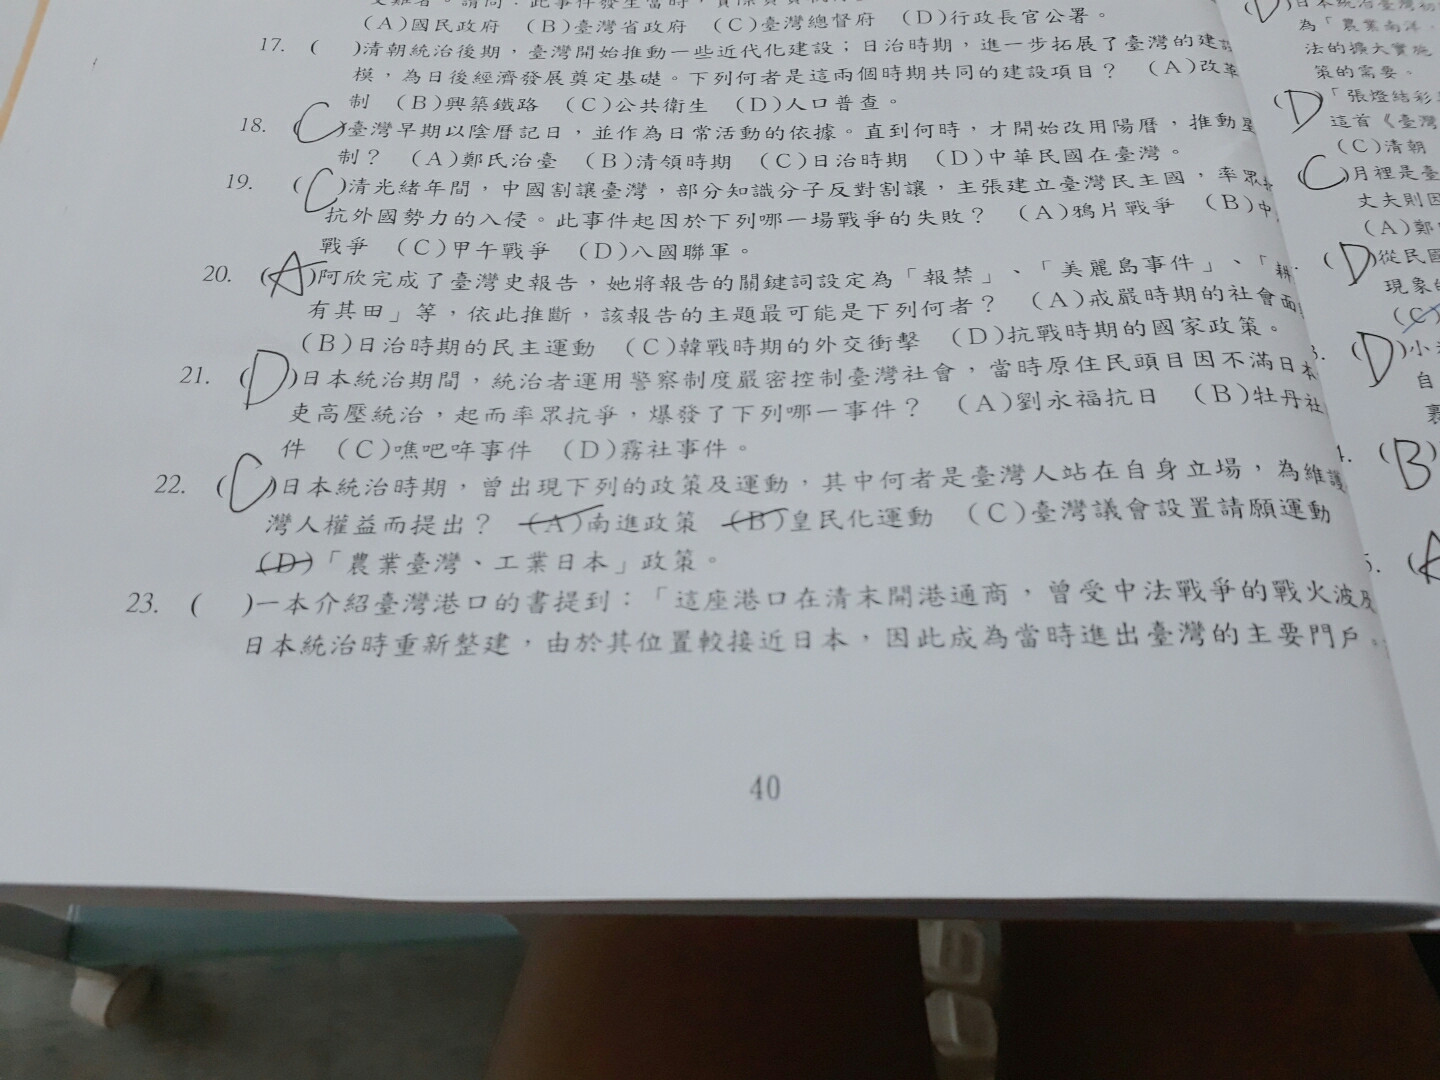 (A)國民政府 (B)臺灣省政府 (C)臺灣總督府 (D)行政長官公署。
17. ( )清朝統治後期，臺灣開始推動一些近代化建設；日治時期，進一步拓展了臺灣的建
模，為日後經濟發展奠定基礎。下列何者是這兩個時期共同的建設項目？ (A)改
制 (B)興築鐵路 (C)公共衛生 (D)人口普查。
18. (C)臺灣早期以陰曆記日，並作為日常活動的依據。直到何時，才開始改用陽曆，推動
制？ (A)鄭氏治臺 (B)清領時期 (C)日治時期 (D)中華民國在臺灣。
19. (C)清光緒年間，中國割讓臺灣，部分知識分子反對割讓，主張建立臺灣民主國，率眾
抗外國勢力的入侵。此事件起因於下列哪一場戰爭的失敗？ (A)鴉片戰爭 (B)中
戰爭 (C)甲午戰爭 (D)八國聯軍。
20. (A)阿欣完成了臺灣史報告，她將報告的關鍵詞設定為「報禁」、「美麗島事件」、「耕
有其田」等，依此推斷，該報告的主題最可能是下列何者？ (A)戒嚴時期的社會面
(B)日治時期的民主運動 (C)韓戰時期的外交衝擊 (D)抗戰時期的國家政策。
21. (D)日本統治期間，統治者運用警察制度嚴密控制臺灣社會，當時原住民頭目因不滿日本
吏高壓統治，起而率眾抗爭，爆發了下列哪一事件？ (A)劉永福抗日 (B)牡丹社
件 (C)噍吧哖事件 (D)霧社事件。
22. (C)日本統治時期，曾出現下列的政策及運動，其中何者是臺灣人站在自身立場，為維護
灣人權益而提出？ (A)南進政策 (B)皇民化運動 (C)臺灣議會設置請願運動
(D)「農業臺灣、工業日本」政策。
23. ( )一本介紹臺灣港口的書提到：「這座港口在清末開港通商，曾受中法戰爭的戰火波及
日本統治時重新整建，由於其位置較接近日本，因此成為當時進出臺灣的主要門戶。
40
(D)日本統治臺灣初
為「農業南洋
法的擴大實施
策的需要。
(D)「張燈結彩
這首《臺灣
(C)清朝
(C)月裡是臺
丈夫則因
(A)鄭
(D)從民國
現象
(C)
(D)小
自
(B)
(A